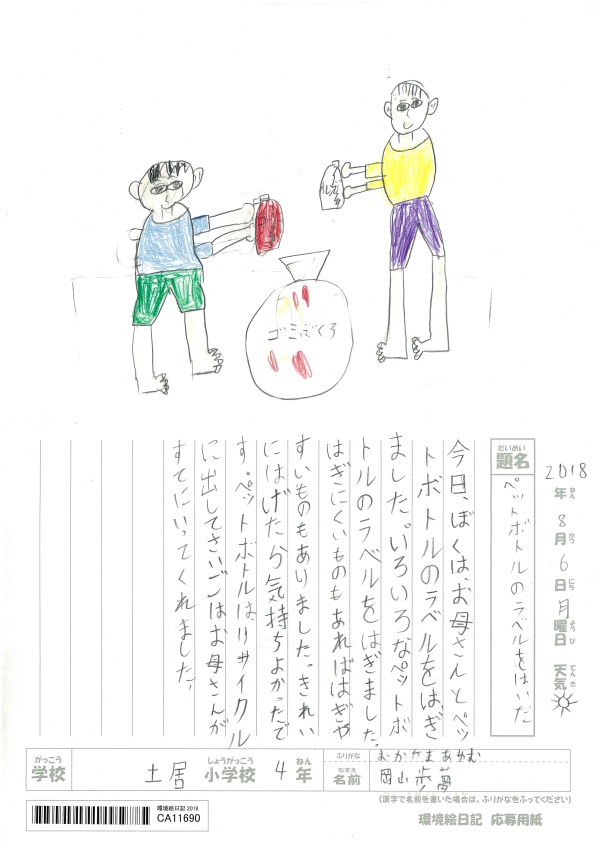 ゴミぶくろ
2018年8月6日月曜日 天気
ねん がつ にち ようび てんき
だいめい
題名
ペットボトルのラベルをはいだ
今日、ぼくは、お母さんとペッ
トボトルのラベルをはぎ
ました。いろいろなペットボ
トルのラベルをはぎました。
はぎにくいものもあればはぎや
すいものもありました。きれい
にはげたら気持ちよかったで
す。ペットボトルは、リサイクル
に出してさいごはお母さんが
すてにいってくれました。
がっこう しょうがっこう ねん
学校 土居 小学校 4年
ふりがな おかやまあゆむ
なまえ
名前 岡山歩夢
(漢字で名前を書いた場合は、ふりがなをふってください)
環境絵日記 2018
CA11690
環境絵日記 応募用紙